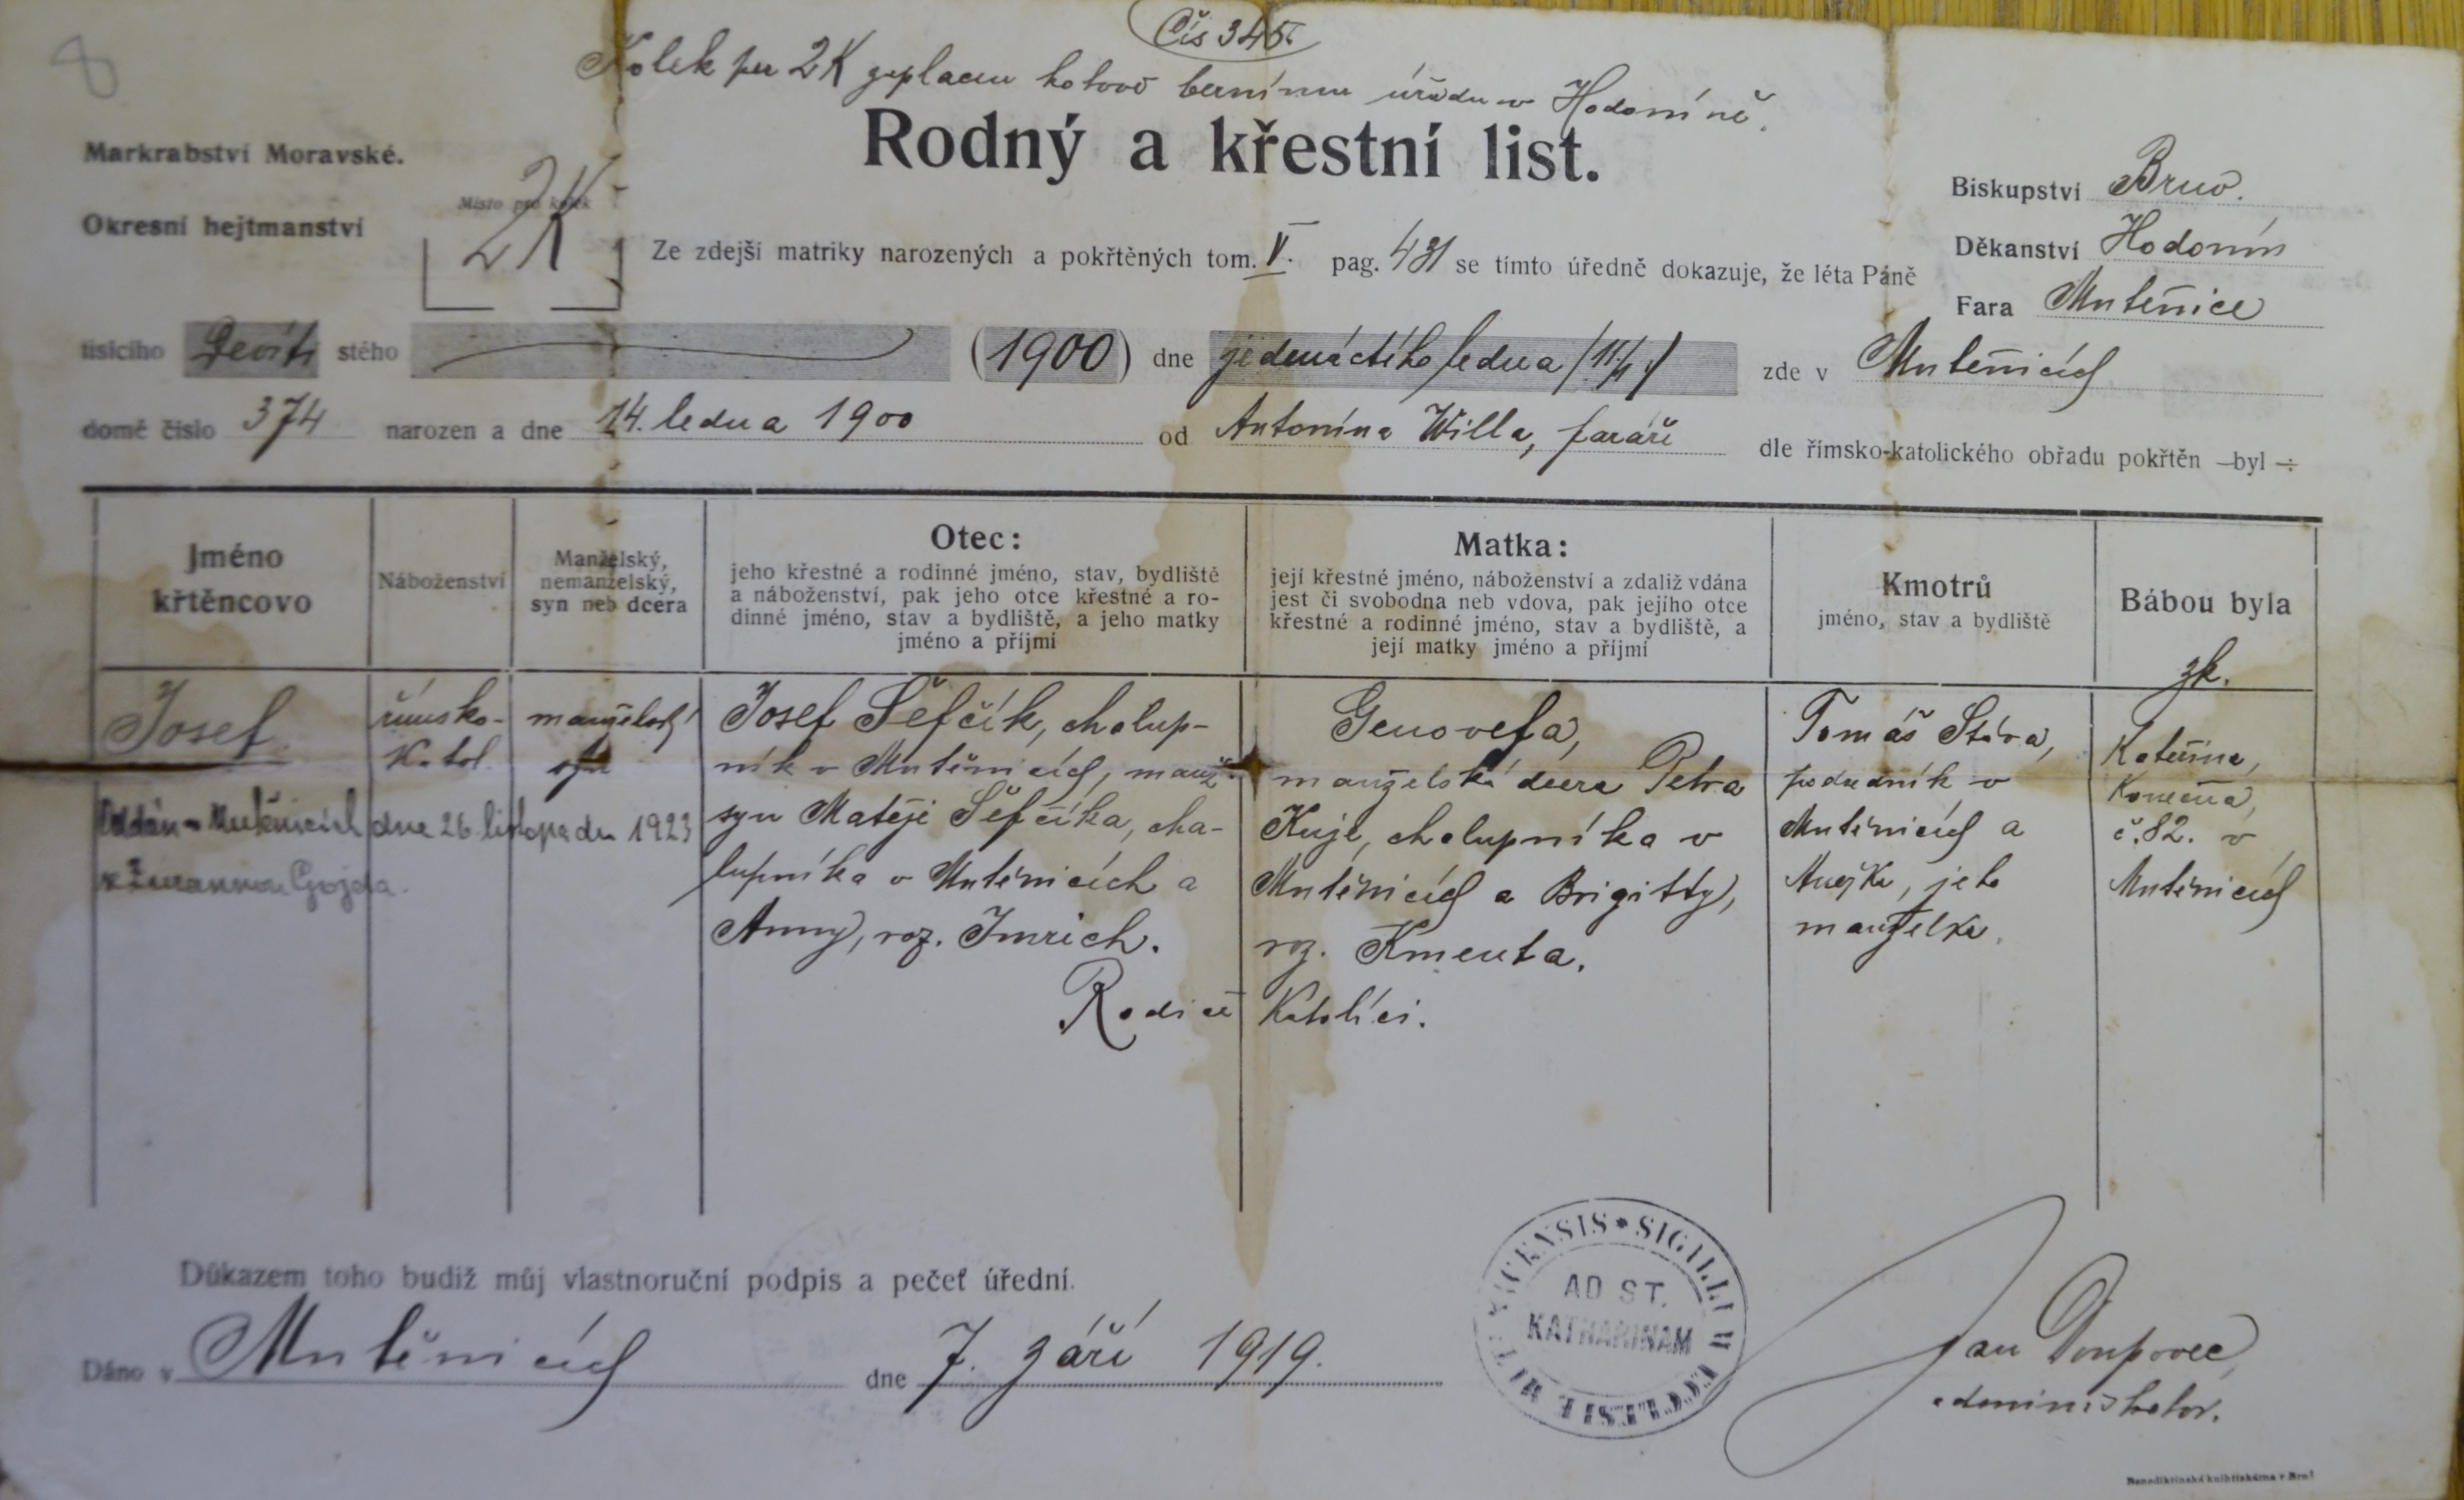 8
Čís 345.
Kolek per 2K zaplacen hotově bernímu úřadu v Hodoníně.
Rodný a křestní list.
Markrabství Moravské.
Okresní hejtmanství
Místo pro kolek
2K
2K
Biskupství Brno.
Děkanství Hodonín
Fara Mutěnice
Ze zdejší matriky narozených a pokřtěných tom. V. pag. 431 se tímto úředně dokazuje, že léta Páně
tisícího Devíti stého (1900) dne jedenáctého ledna (11/1) zde v Mutěnicích
domě číslo 374 narozen a dne 14. ledna 1900 od Antonína Willa, faráře dle římsko-katolického obřadu pokřtěn –byl ÷
Jméno
křtěncovo
Náboženství
Manželský,
nemanželský,
syn neb dcera
Otec:
jeho křestné a rodinné jméno, stav, bydliště
a náboženství, pak jeho otce křestné a ro-
dinné jméno, stav a bydliště, a jeho matky
jméno a příjmí
Matka:
její křestné jméno, náboženství a zdaliž vdána
jest či svobodna neb vdova, pak jejího otce
křestné a rodinné jméno, stav a bydliště, a
její matky jméno a příjmí
Kmotrů
jméno, stav a bydliště
Bábou byla
zk.
Josef
římsko-
katol.
manželský
syn
Oddán v Mutěnicích dne 26. listopadu 1923
s Zuzannou Gojda.
Josef Šefčík, chalup-
ník v Mutěnicích, manž.
syn Matěje Šefčíka, cha-
lupníka v Mutěnicích a
Anny, roz. Imrich.
Genovefa,
manželská dcera Petra
Kuje, chalupníka v
Mutěnicích a Brigitty,
roz. Kmenta.
Rodiče katolíci.
Tomáš Stávа,
podudník v
Mutěnicích a
Anežka, jeho
manželka.
Kateřina,
Konečná,
č. 82. v
Mutěnicích
Důkazem toho budiž můj vlastnoruční podpis a pečeť úřední.
Dáno v Mutěnicích dne 7. září 1919.
AD ST.
KATHARINAM
Jan Doupovec,
administrátor.
Benediktinská knihtiskárna v Brně